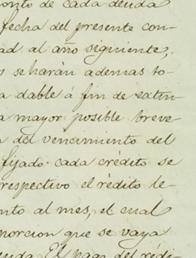 onto de cada deuda
fecha del presente con-
ad al año siguiente,
s se harán ademas to-
a dable á fin de estin
a mayor posible breve
del vencimiento del
fijado cada crédito se
respectivo el rédito le-
nto al mes, el cual
porcion que se vaya
El pago del rédi-